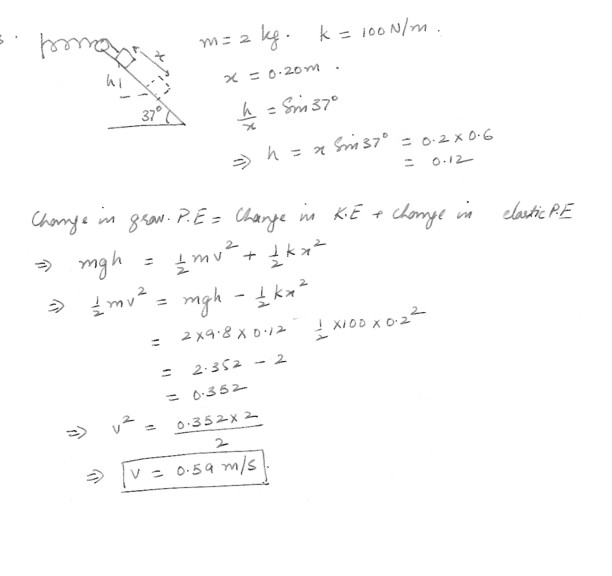 3.
m = 2 kg. k = 100 N/m.
x
h
37°
x = 0.20m.
h/x = Sin 37°
⇒ h = x Sin 37° = 0.2 x 0.6
= 0.12
Change in grav. P.E = Change in K.E + change in elastic P.E
⇒ mgh = 1/2 mv² + 1/2 kx²
⇒ 1/2 mv² = mgh - 1/2 kx²
= 2 x 9.8 x 0.12 - 1/2 x 100 x 0.2²
= 2.352 - 2
= 0.352
⇒ v² = 0.352 x 2 / 2
⇒ V = 0.59 m/s.